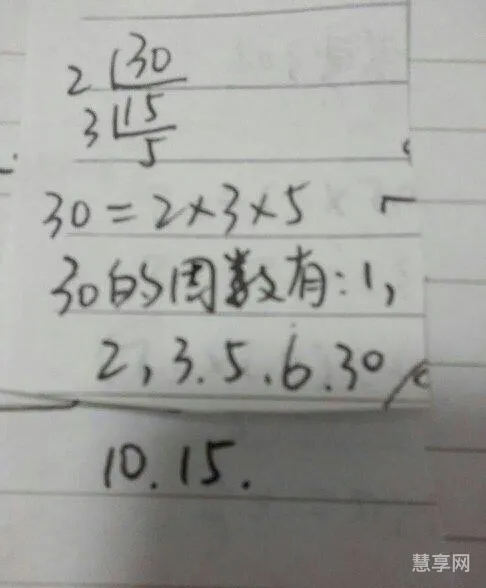 2 30
3 15
5
30=2×3×5
30的周数有:1,
2,3.5.6.30
10.15.
慧享网